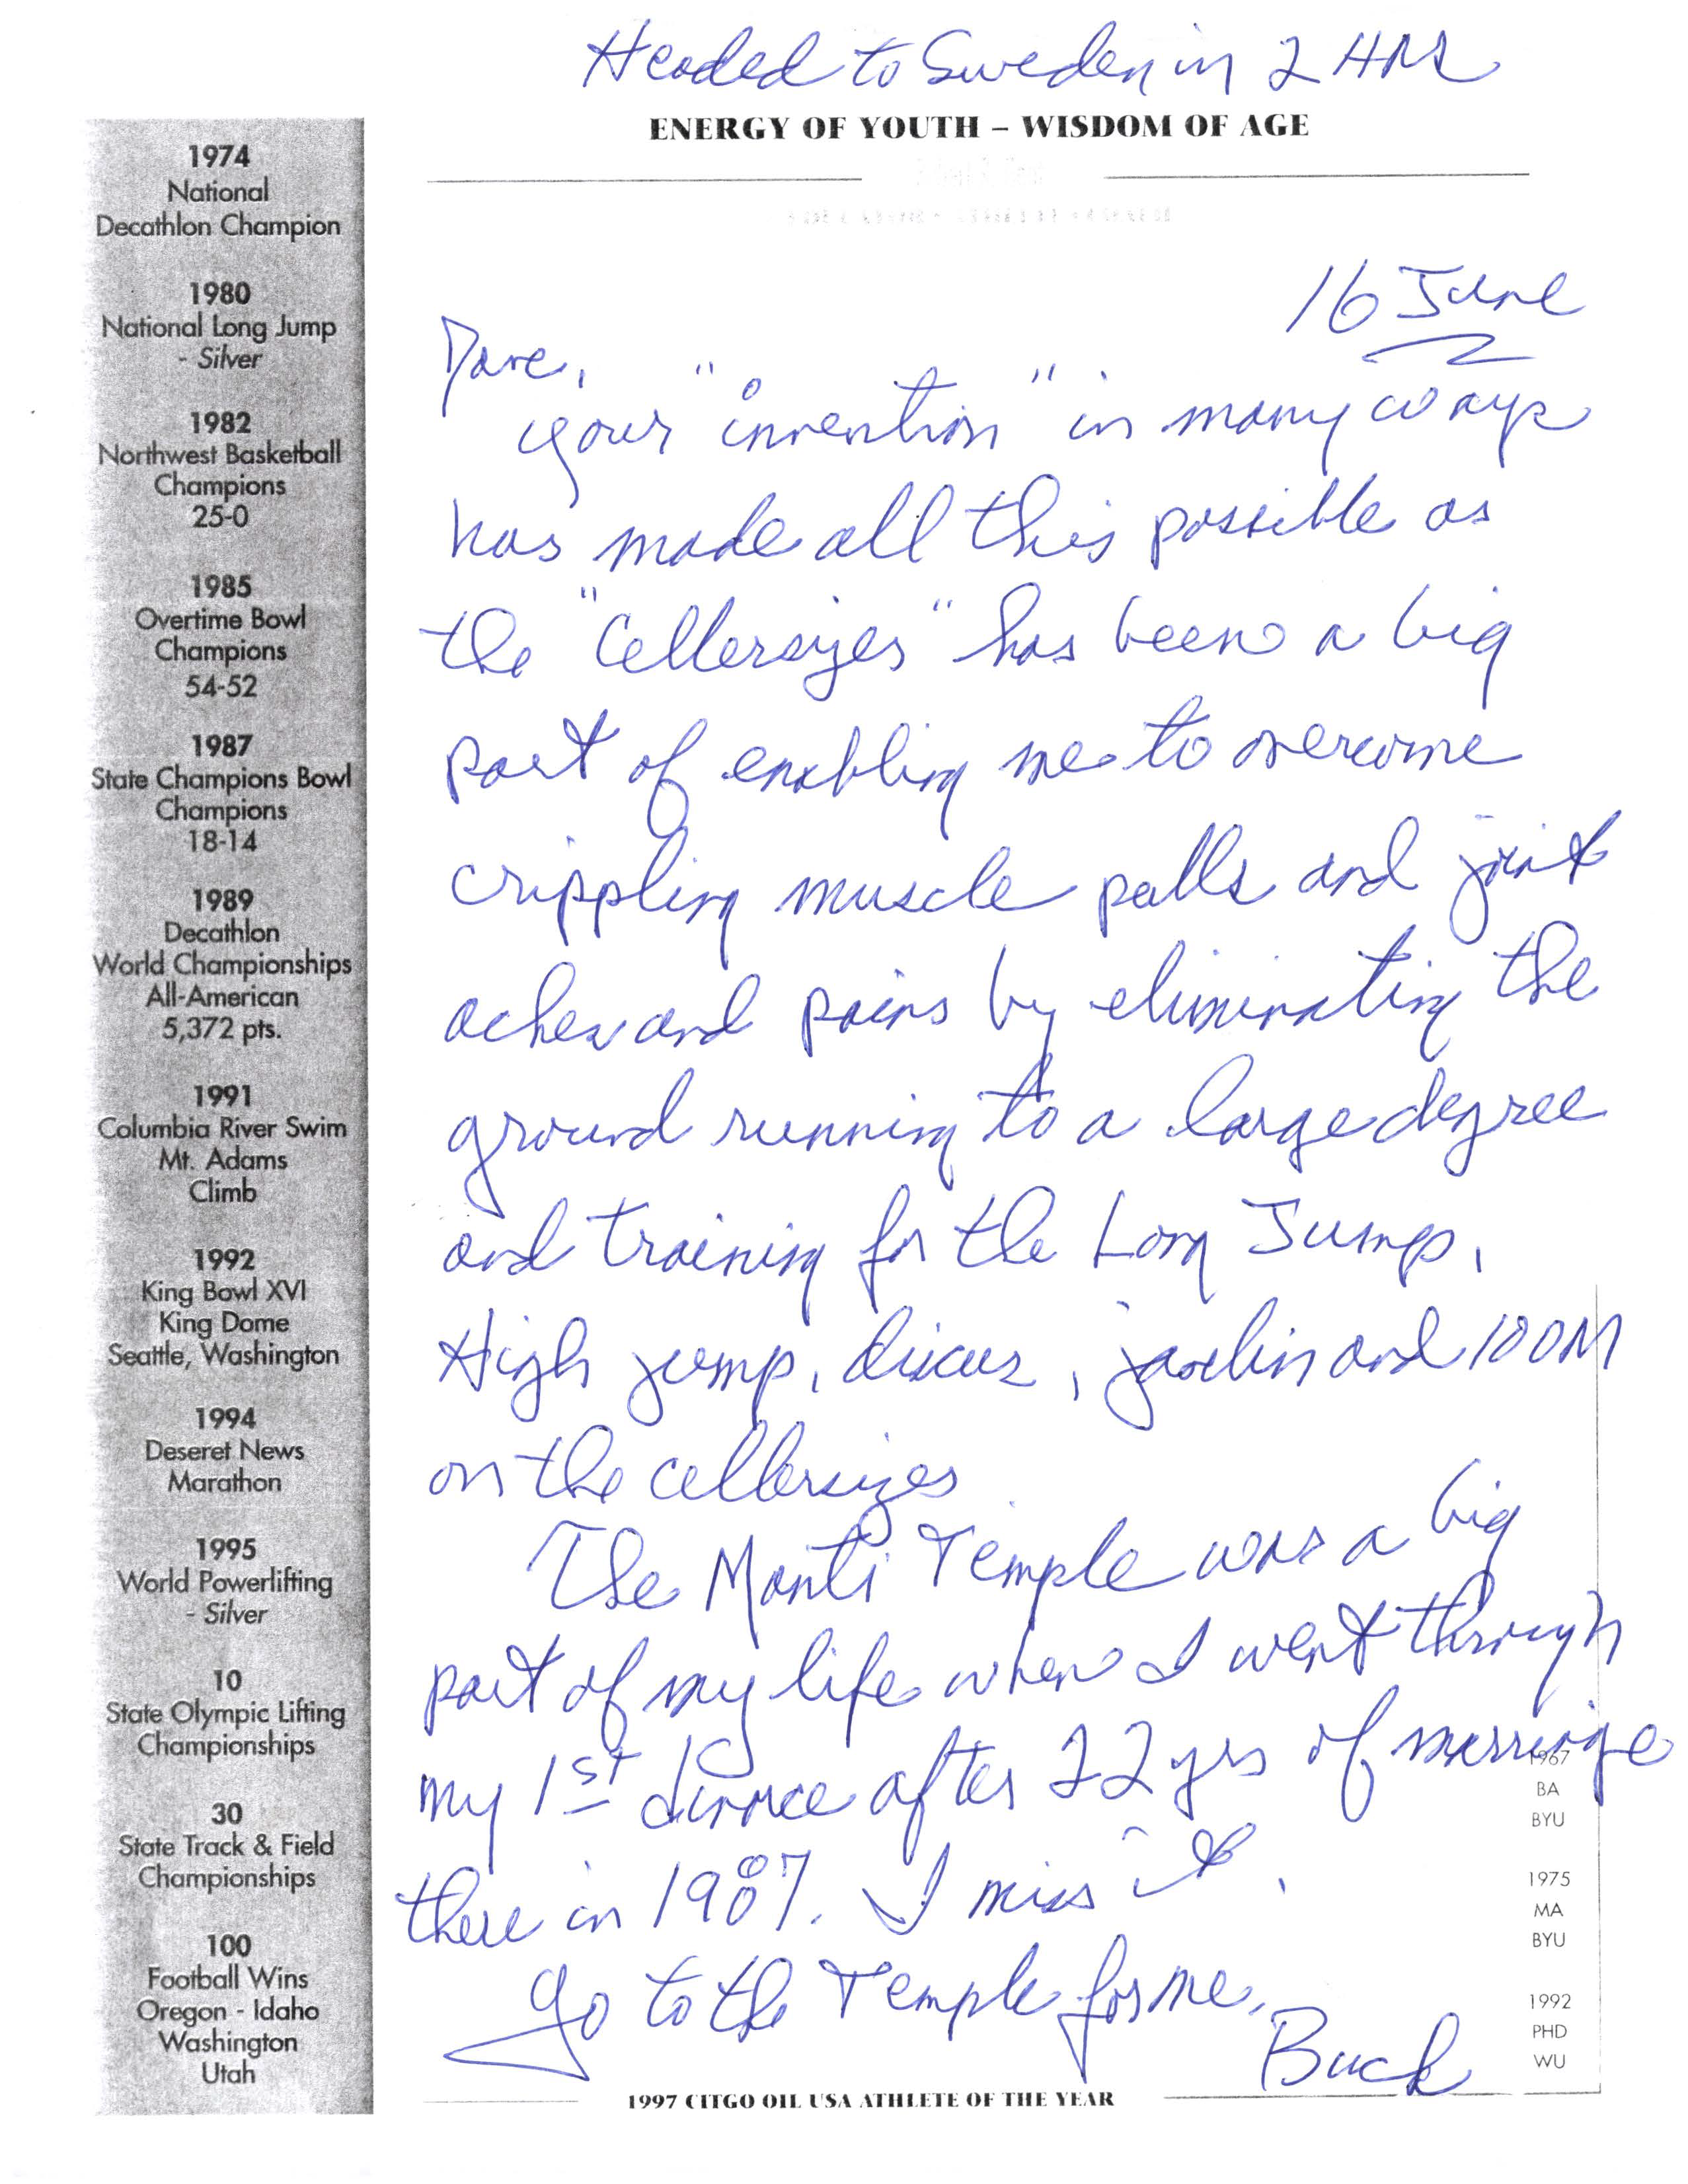 Headed to Sweden in 2 HRS
ENERGY OF YOUTH – WISDOM OF AGE
1974
National
Decathlon Champion
1980
National Long Jump
- Silver
1982
Northwest Basketball
Champions
25-0
1985
Overtime Bowl
Champions
54-52
1987
State Champions Bowl
Champions
18-14
1989
Decathlon
World Championships
All-American
5,372 pts.
1991
Columbia River Swim
Mt. Adams
Climb
1992
King Bowl XVI
King Dome
Seattle, Washington
1994
Deseret News
Marathon
1995
World Powerlifting
- Silver
10
State Olympic Lifting
Championships
30
State Track & Field
Championships
100
Football Wins
Oregon - Idaho
Washington
Utah
16 June
Dave,
your "invention" in many ways
has made all this possible as
the "Cellersizes" has been a big
part of enabling me to overcome
crippling muscle pulls and joint
aches and pains by eliminating the
ground running to a large degree
and training for the Long Jump,
High jump, discus, javlin and 100M
on the cellersizes
The Manti Temple was a big
part of my life when I went through
my 1st divorce after 22 yrs of marriage
there in 1987. I miss it.
go to the Temple for me.
Buck
1967
BA
BYU
1975
MA
BYU
1992
PHD
WU
1997 CITGO OIL USA ATHLETE OF THE YEAR